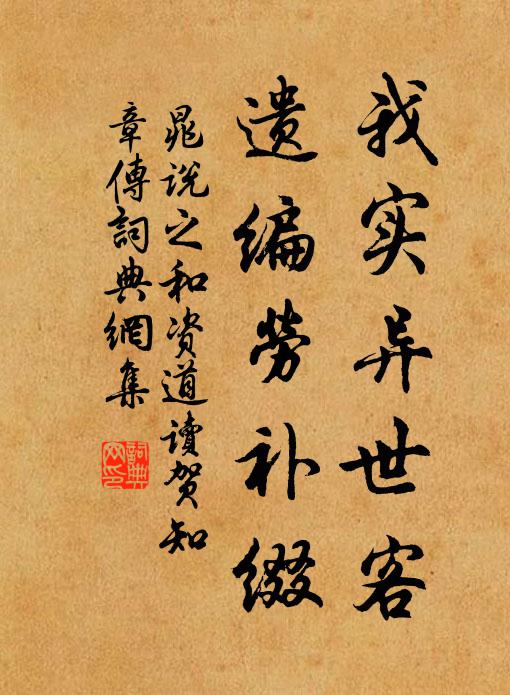 我实异世客
遗编劳补缀
晁说之和资道读贺知
章传詞典網集
詞典
网印